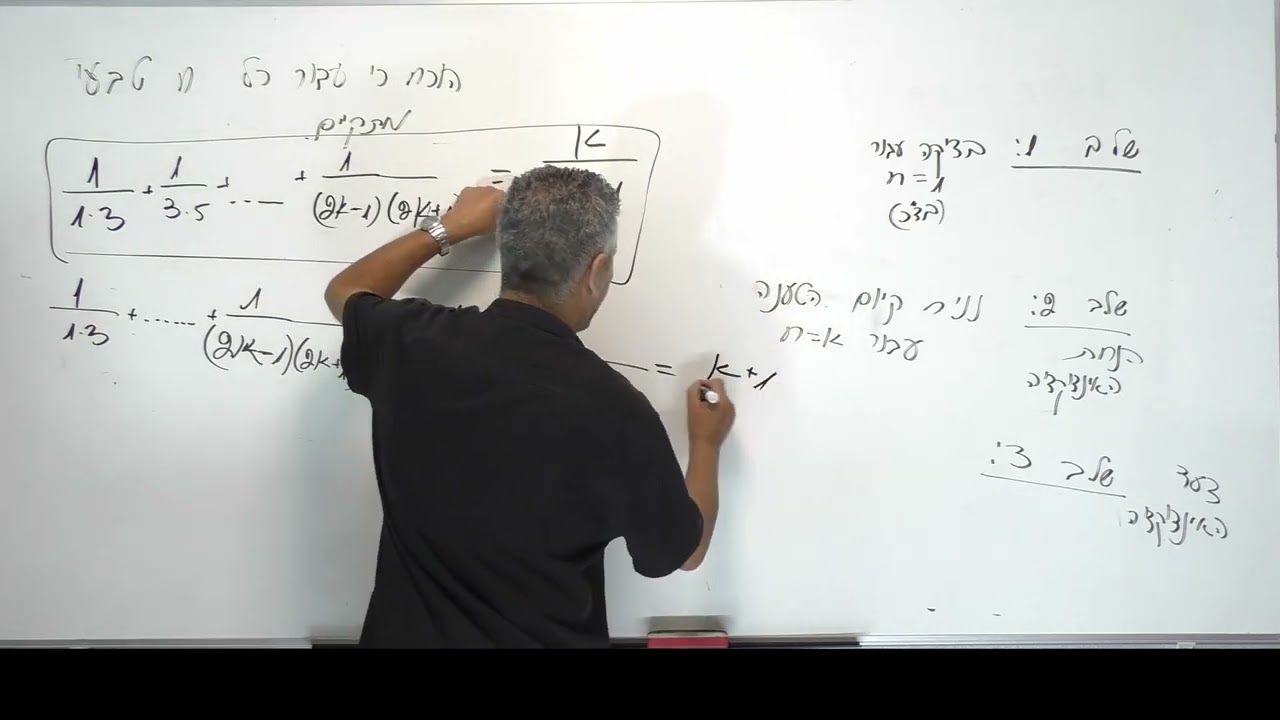 הוכח כי עבור כל n טבעי
מתקיים
1/(1·3) + 1/(3·5) + ..... + 1/((2k-1)(2k+1 = k/
1/(1·3) + ...... + 1/((2k-1)(2k+1 = k+1
שלב 1: בדיקה עבור
n=1
(בצ"כ)
שלב 2: נניח קיום הטענה
עבור n=k
הנחת
האינדוקציה
שלב 3: צעד
האינדוקציה